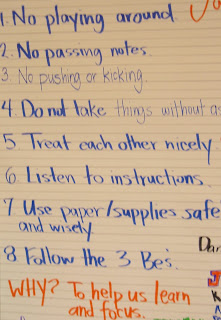 1. No playing around.
2. No passing notes.
3. No pushing or kicking.
4. Do not take things without
5 Treat each other nicely
6 Listen to instructions.
7 Use paper/supplies safe
and wisely
8 Follow the 3 Be's.
WHY? To help us learn
and focus.